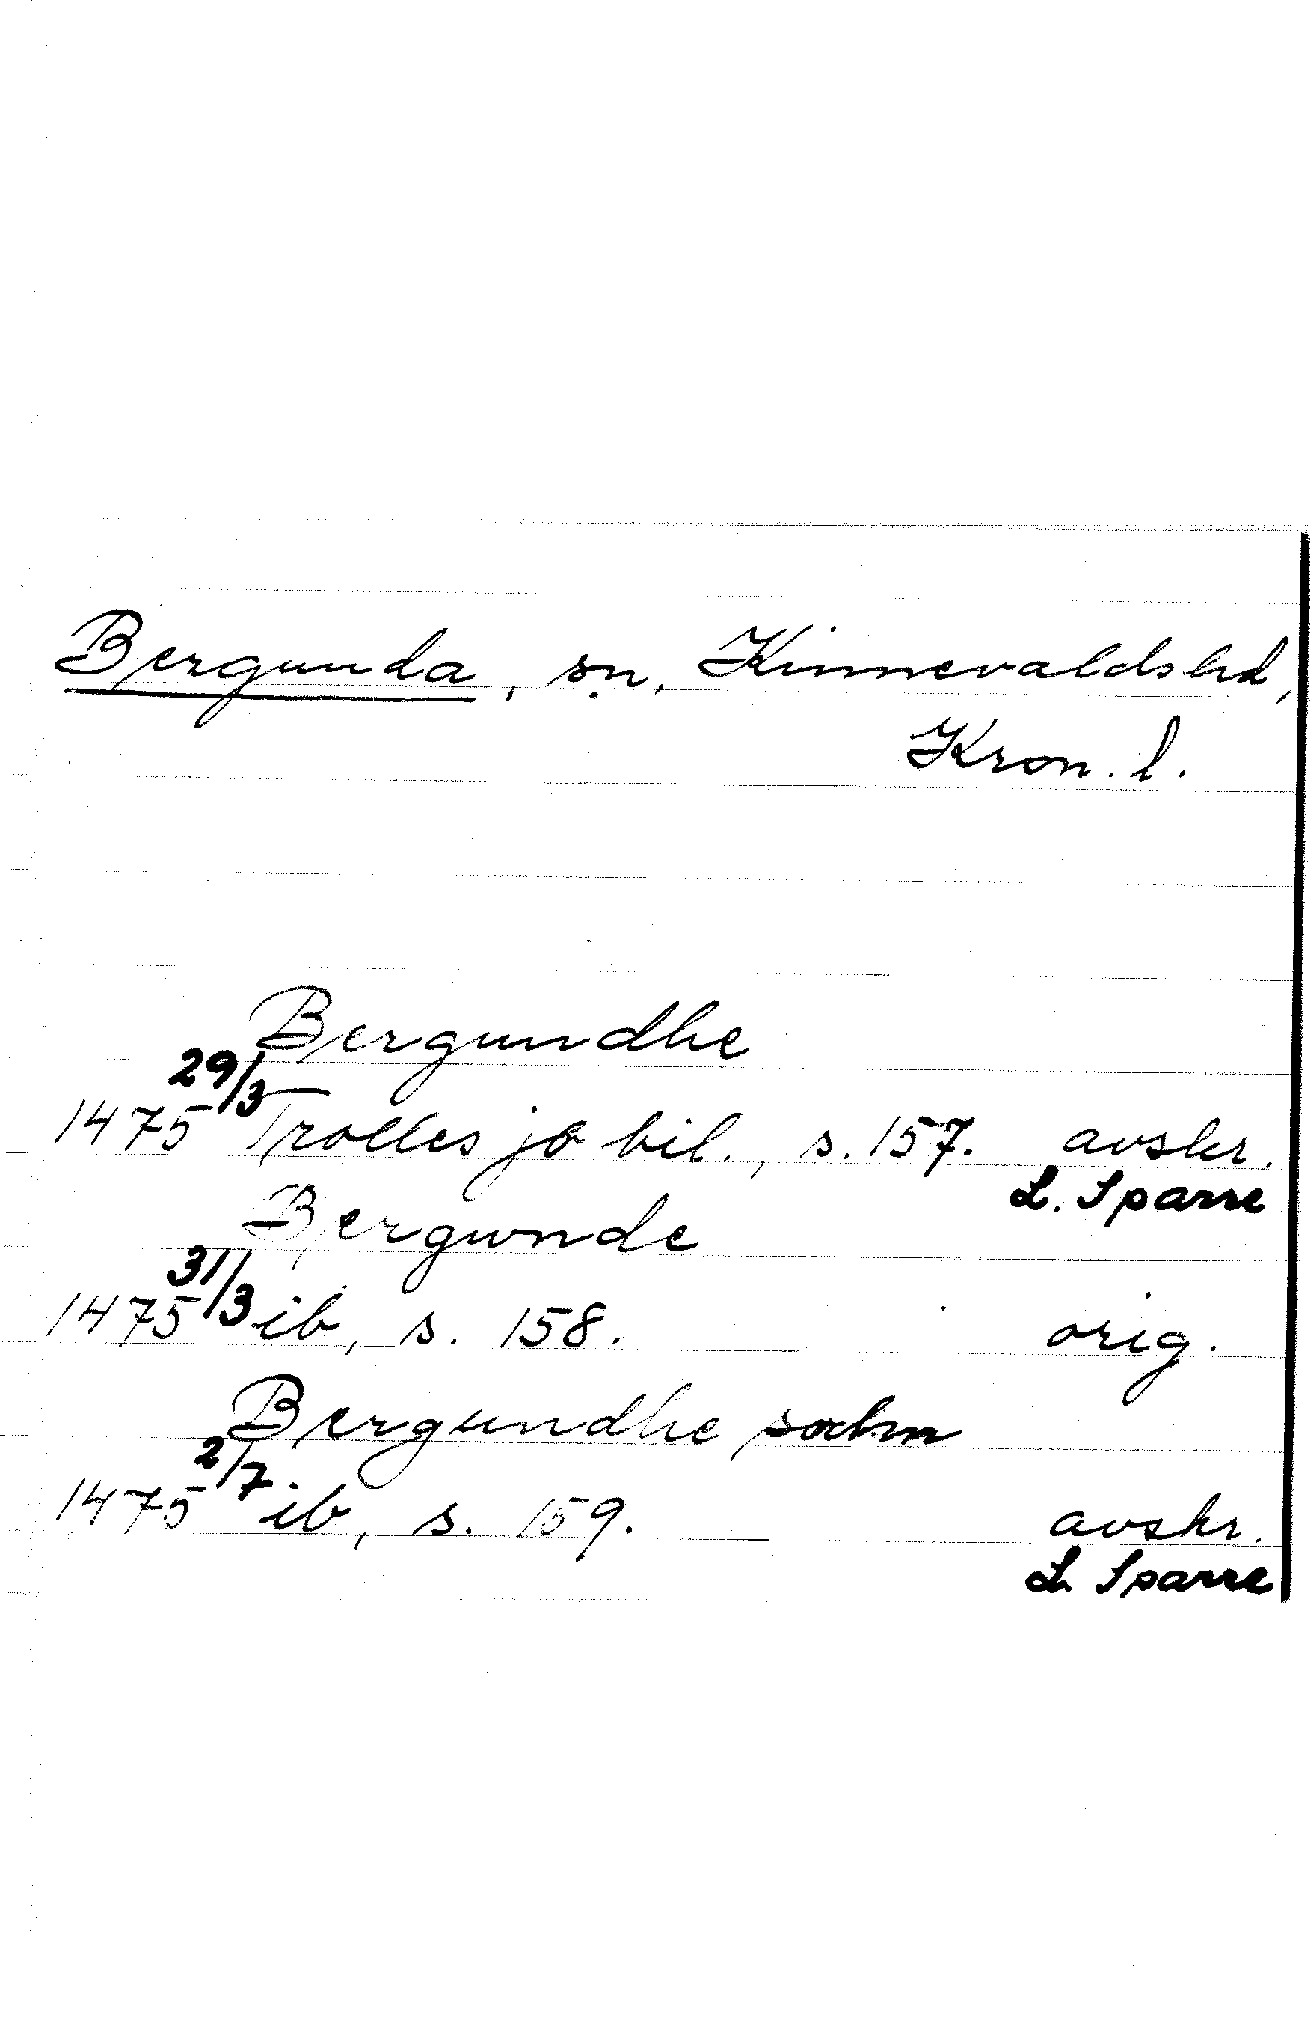 Bergunda, sn, Kinnevaldshd,
Kron. l.
Bergundhe
1475 29/3 Trolles jb bil., s. 157. avskr.
L. Sparre
Bergwnde
1475 31/3 ib, s. 158. orig.
Bergundhe sokn
1475 2/7 ib, s. 159. avskr.
L. Sparre